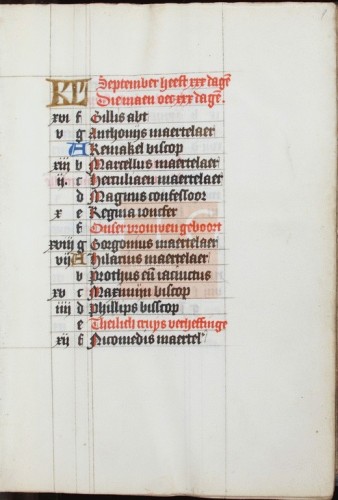 KL September heeft xxx dage
Die maen oec xxx dage.
xvi f Gillis abt
v g Anthonijs maertelaer
A Remakel biscop
xiij b Marcellus maertelaer
ij. c Herculiaen maertelaer
d Magnus confessoor
x e Regina ioncfer
f Onser vrouwen geboort
xviij g Gorgomus maertelaer
vij A Hilarius maertelaer
b Prothus en iacinctus
xv c Maximijn biscop
iiij d Philips bisscop
e Theilich cruys verheffinge
xij f Nicomedis maertel